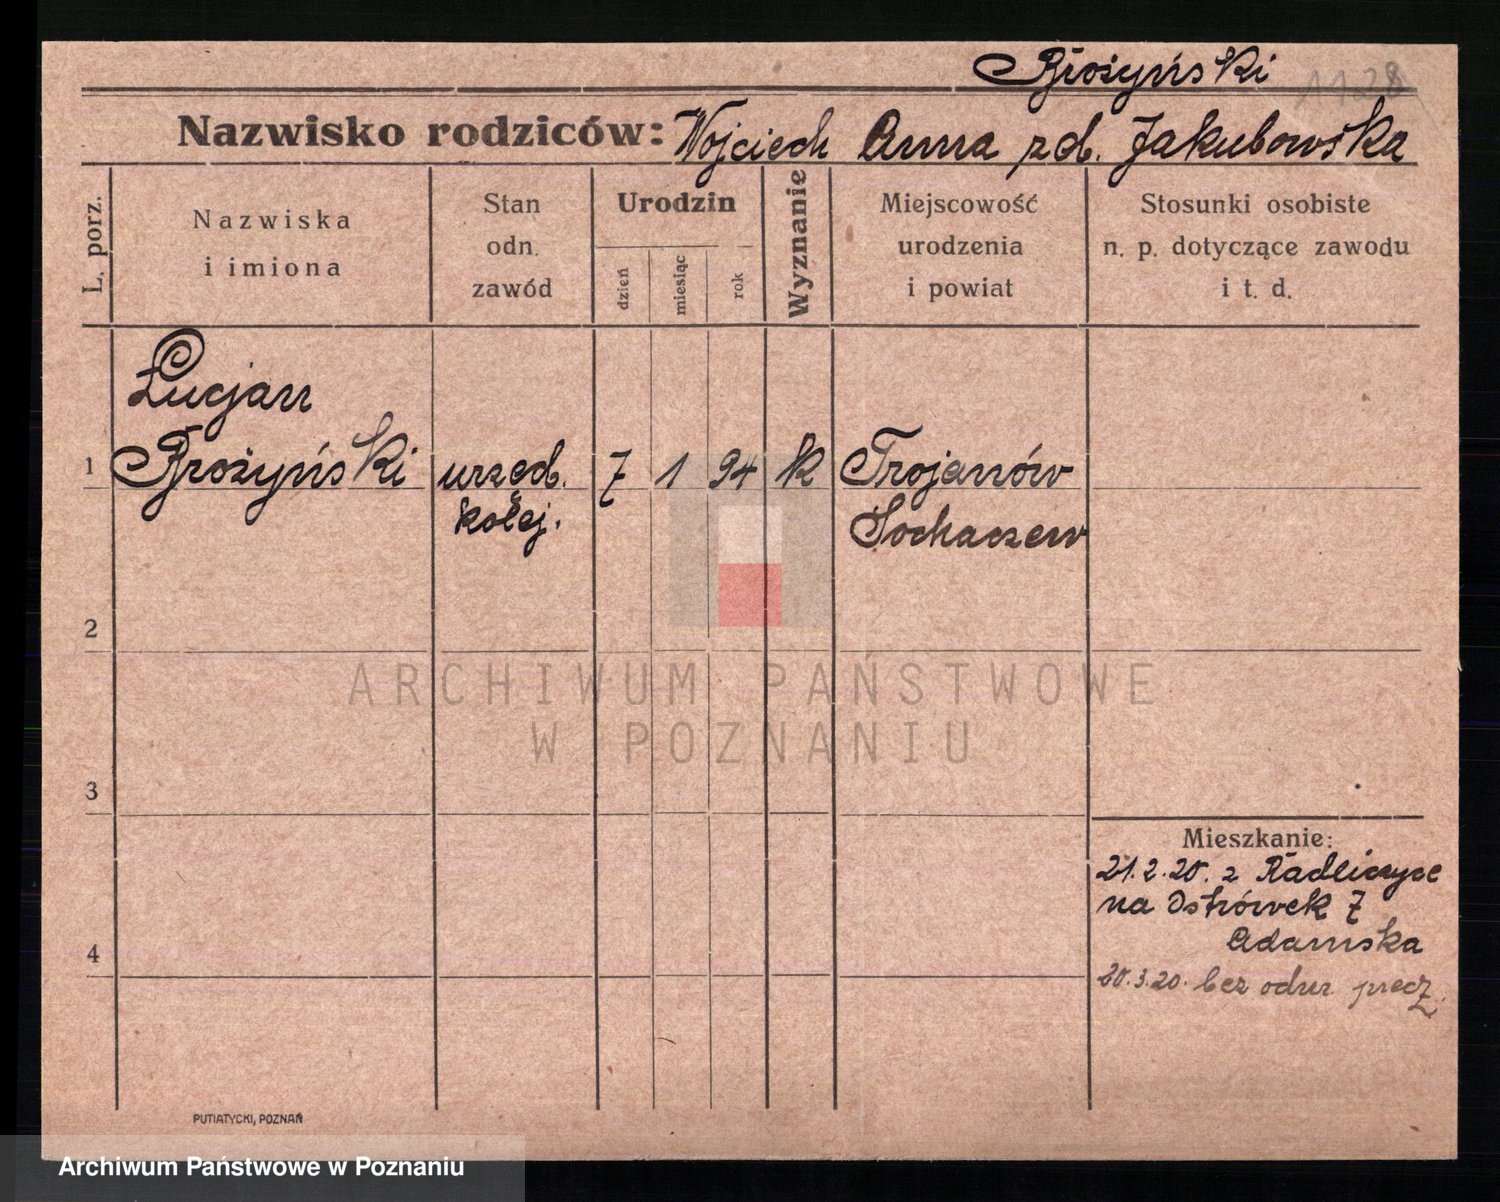 Brożyński 1128
Nazwisko rodziców: Wojciech Anna zd. Jakubowska
L. porz.
Nazwiska
i imiona
Stan
odn.
zawód
Urodzin
dzień
miesiąc
rok
Wyznanie
Miejscowość
urodzenia
i powiat
Stosunki osobiste
n. p. dotyczące zawodu
i t. d.
Łucjan
1 Brożyński urzęd. 7 1 94 k Trojanów
kolej. Sochaczew
2
ARCHIWUM PAŃSTWOWE
W POZNANIU
3
Mieszkanie:
21.2.20. z Radliczyce
na Ostrówek 7
Adamska
4
20.3.20. bez odmr.
PUTIATYCKI, POZNAŃ
Archiwum Państwowe w Poznaniu